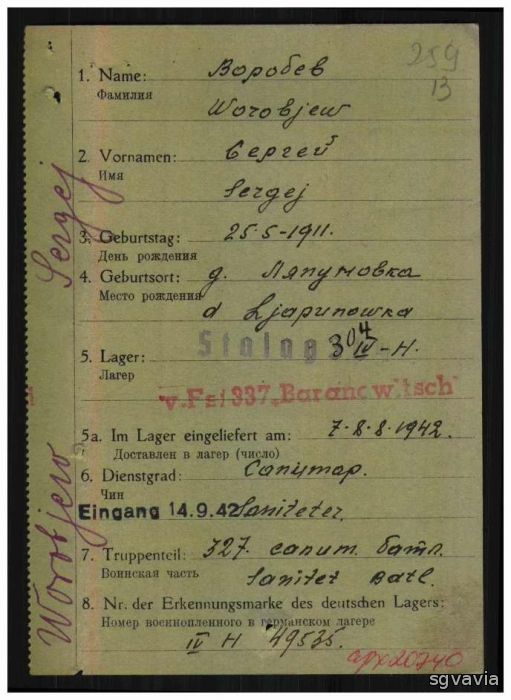 259
13
1. Name: Воробев
Фамилия
Worobjew
2. Vornamen: Сергей
Имя
Sergej
3. Geburtstag: 25-5-1911.
День рождения
4. Geburtsort: д. Ляпуновка
Место рождения
d Ljapunowka
Stalag 304
5. Lager: IV-H.
Лагерь
v. Fst 337 "Baranowitsch"
5a. Im Lager eingeliefert am: 7-8.8.1942.
Доставлен в лагер (число)
6. Dienstgrad: Санитар.
Чин
Eingang 14.9.42 Saniteter.
7. Truppenteil: 327. санит. батл.
Воинская часть
Sanitet Batl.
8. Nr. der Erkennungsmarke des deutschen Lagers:
Номер военнопленного в германском лагере
IV H 49535.
арх 20740
Worobjew Sergej
sgvavia